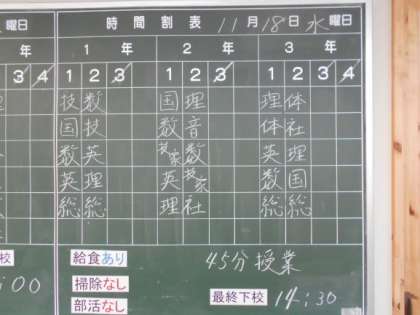 曜日 時間割表 11月18日水曜日
年 1年 2年 3年
3 4 1 2 3 1 2 3 1 2 3 4
技 数 国 理 理 体
国 技 数 音 体 社
数 英 技家 数 英 理
英 理 英 技家 数 国
総 総 理 社 総 総
校 給食あり 45分授業
:00 掃除なし
部活なし 最終下校 14:30